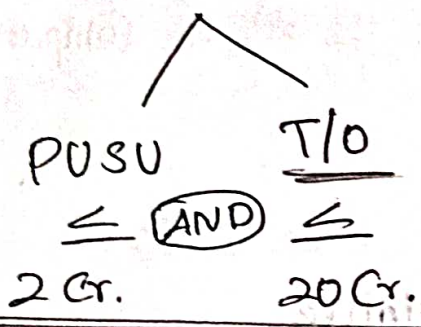 PUSU T/O
≤ AND ≤
2 Cr. 20 Cr.